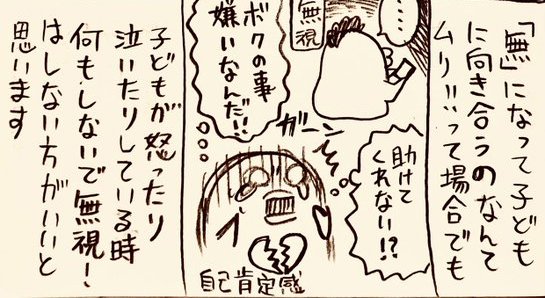 「無」になって子ども
に向き合うのなんて
ムリ!!って場合でも
……
無視
助けて
くれない!?
ガーン
ボクの事
嫌いなんだ!!
自己肯定感
子どもが怒ったり
泣いたりしている時
何もしないで無視!
はしない方がいいと
思います